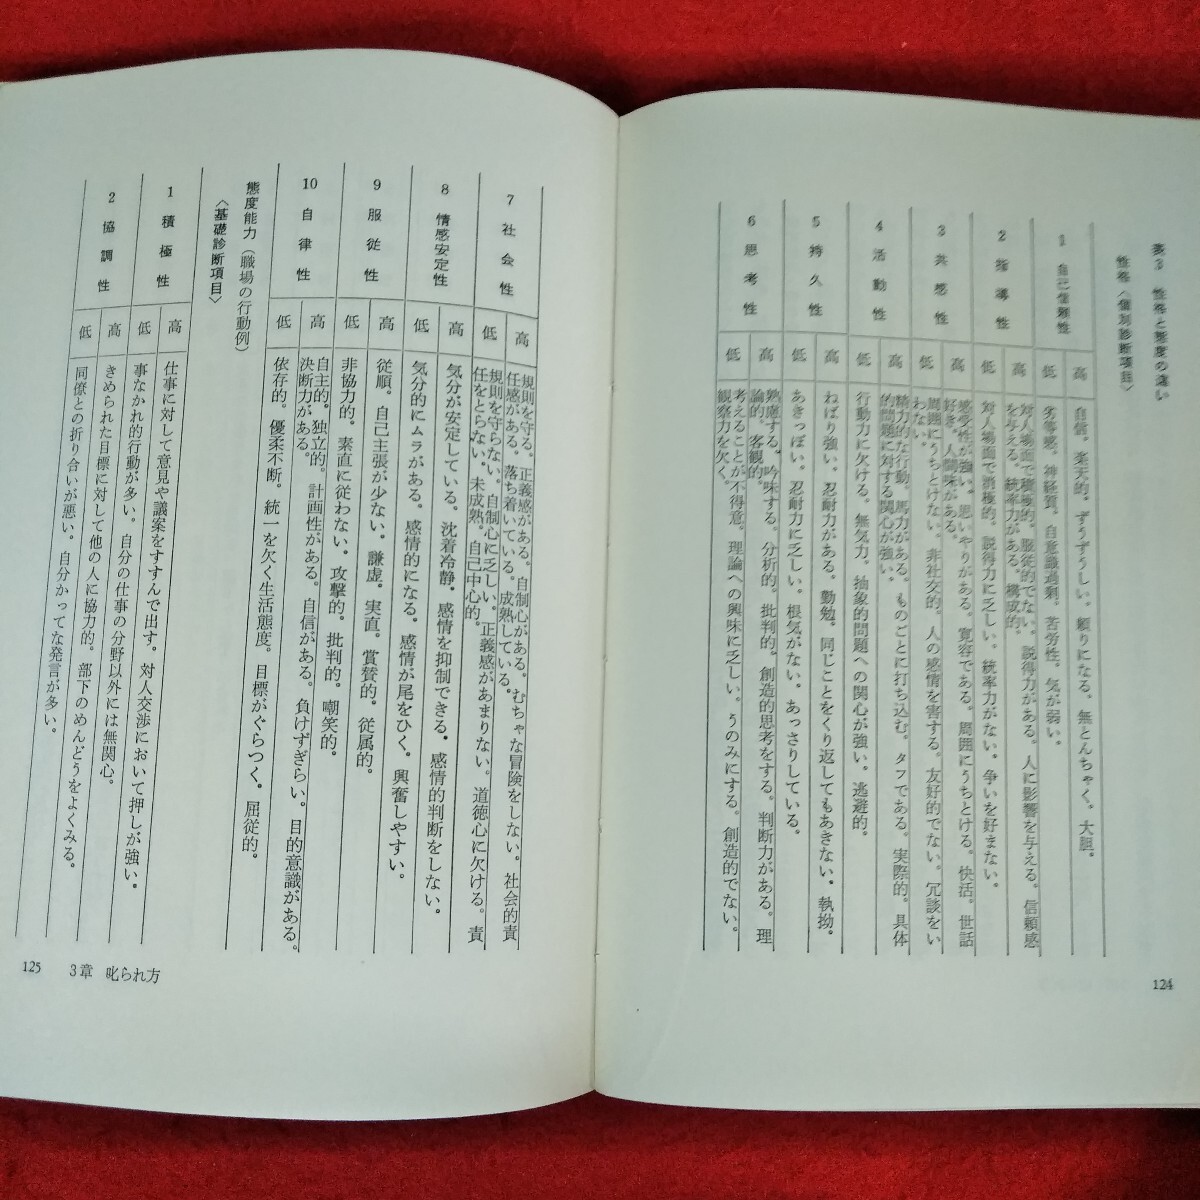 表3 性格と態度の違い
性格〈個別診断項目〉
1 自己信頼性
高
自信。楽天的。ずうずうしい。頼りになる。無とんちゃく。大胆。
低
劣等感。神経質。自意識過剰。苦労性。気が弱い。
2 指導性
高
対人場面で積極的。服従的でない。説得力がある。人に影響を与える。信頼感
を与える。統率力がある。構成的。
低
対人場面で消極的。説得力に乏しい。統率力がない。争いを好まない。
3 共感性
高
感受性が強い。思いやりがある。寛容である。周囲にうちとける。快活。世話
好き。人間味がある。
低
周囲にうちとけない。非社交的。人の感情を害する。友好的でない。冗談をい
わない。
4 活動性
高
精力的な行動。馬力がある。ものごとに打ち込む。タフである。実際的。具体
的問題に対する関心が強い。
低
行動力に欠ける。無気力。抽象的問題への関心が強い。逃避的。
5 持久性
高
ねばり強い。忍耐力がある。勤勉。同じことをくり返してもあきない。執拗。
低
あきっぽい。忍耐力に乏しい。根気がない。あっさりしている。
6 思考性
高
熟慮する。吟味する。分析的。批判的。創造的思考をする。判断力がある。理
論的。客観的。
低
考えることが不得意。理論への興味に乏しい。うのみにする。創造的でない。
観察力を欠く。
124
7 社会性
高
規則を守る。正義感がある。自制心がある。むちゃな冒険をしない。社会的責
任感がある。落ち着いている。成熟している。
低
規則を守らない。自制心に乏しい。正義感があまりない。道徳心に欠ける。責
任をとらない。未成熟。自己中心的。
8 情感安定性
高
気分が安定している。沈着冷静。感情を抑制できる。感情的判断をしない。
低
気分的にムラがある。感情的になる。感情が尾をひく。興奮しやすい。
9 服従性
高
従順。自己主張が少ない。謙虚。実直。賞賛的。従属的。
低
非協力的。素直に従わない。攻撃的。批判的。嘲笑的。
10 自律性
高
自主的。独立的。計画性がある。自信がある。負けずぎらい。目的意識がある。
決断力がある。
低
依存的。優柔不断。統一を欠く生活態度。目標がぐらつく。屈従的。
態度能力（職場の行動例）
〈基礎診断項目〉
1 積極性
高
仕事に対して意見や議案をすすんで出す。対人交渉において押しが強い。
低
事なかれ的行動が多い。自分の仕事の分野以外には無関心。
2 協調性
高
きめられた目標に対して他の人に協力的。部下のめんどうをよくみる。
低
同僚との折り合いが悪い。自分かってな発言が多い。
125 3章 叱られ方